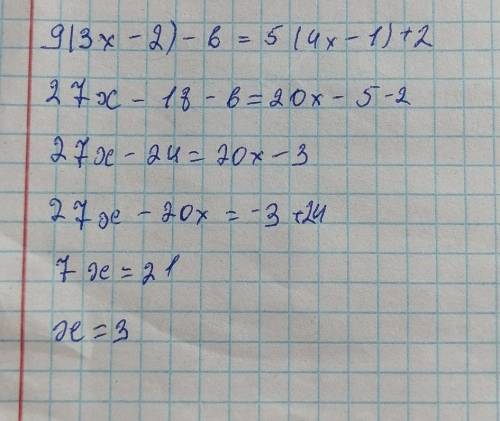 9(3x - 2) - 6 = 5 (4x - 1) + 2
27x - 18 - 6 = 20x - 5 - 2
27x - 24 = 20x - 3
27x - 20x = -3 + 24
7x = 21
x = 3